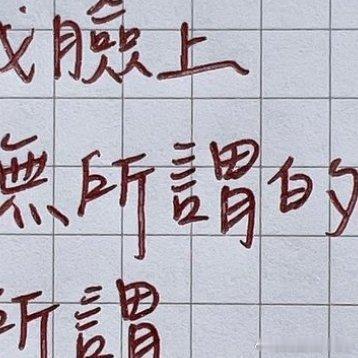 臉上
無所謂的
所謂